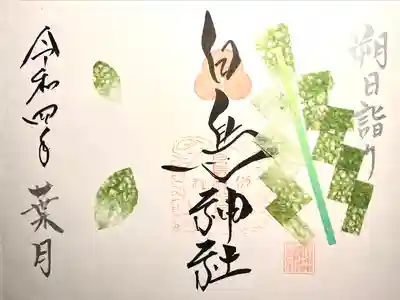 朔日詣り
白鳥神社
令和四年 葉月